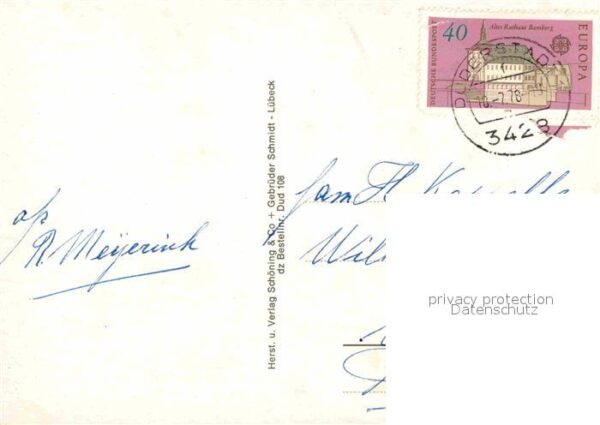 Altes Rathaus Bamberg
40
DEUTSCHE BUNDESPOST
EUROPA
DUDERSTADT
3428
Herst. u. Verlag Schöning & Co + Gebrüder Schmidt - Lübeck
dz Bestellnr. Dud 108
fam
R. Meijerink
Wil
privacy protection
Datenschutz